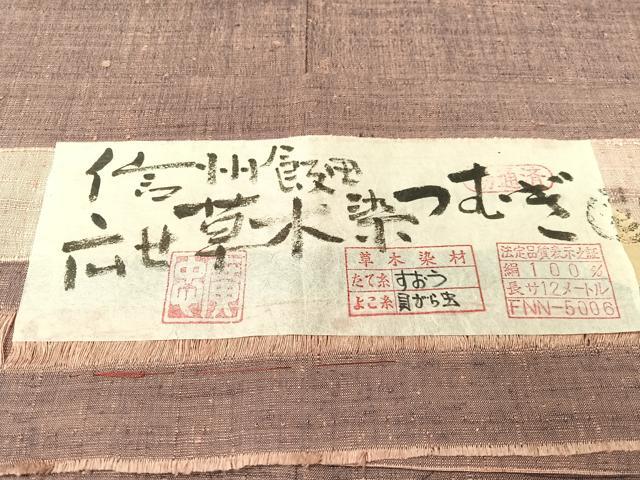 信州飯田
広せ草木染つむぎ
通済
草木染材
たて糸 すおう
よこ糸 貝がら虫
法定品質表示之証
絹100%
長サ12メートル
FNN-5006